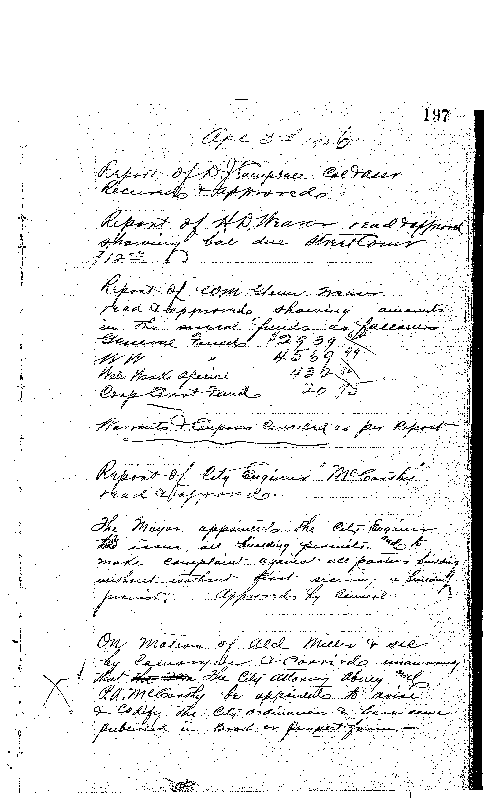 197
Apr 3d 1906
Report of D J Campbell Collector
Received & approved
Report of H D Weaver read & approved
showing bal due Street Comr
$12
Report of Com Weaver
read & approved showing amounts
in the several funds as follows
General Funds $2939
W W " 4569 99
Wat Works Special 432
Coup Fund 20 95
Warrants & Coupons Canceled as per Report
Report of City Engineer McCarthy
read & approved.
The Mayor appointed the City Engineer
to issue all building permits and to
make complaint against all parties building
without without first securing a building
permit. Approved by Council
On Motion of Ald Miller & sec
by & carried unanimously
that the City Attorney and
P.A. McCarthy be appointed to revise
& codify the City ordinances & have same
published in Book or pamphlet form.